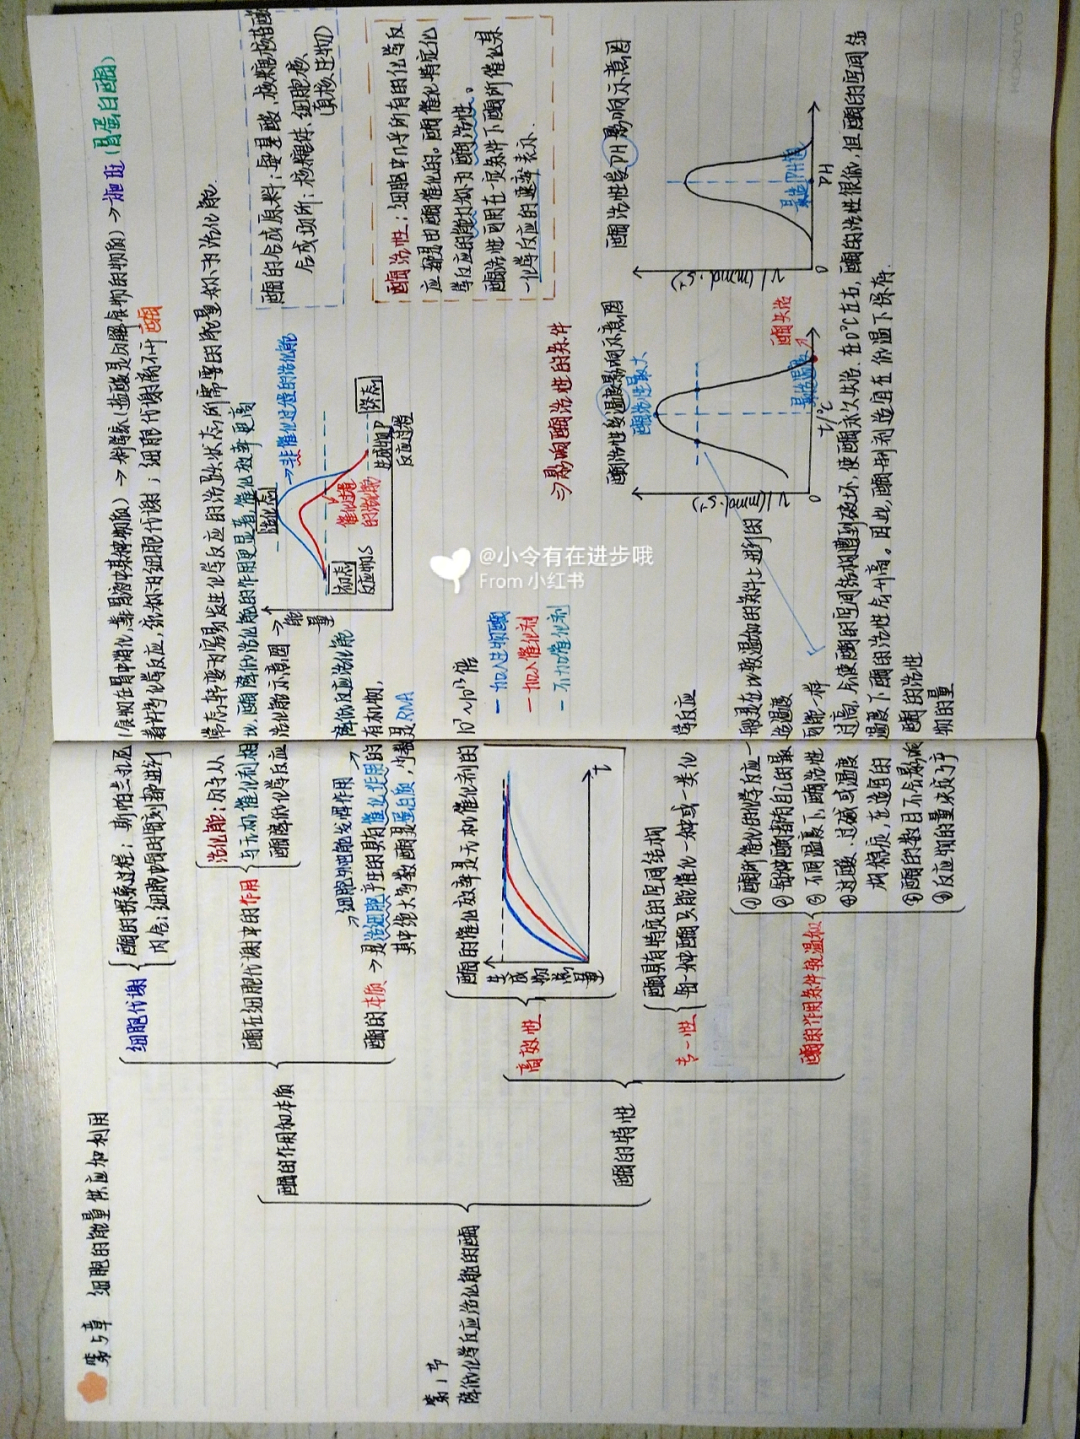 第5章 细胞的能量供应和利用
第1节
降低化学反应活化能的酶
酶的作用和本质
细胞代谢
酶的探索过程：斯帕兰扎尼(食物在胃中消化，靠胃液中某种物质) → 科学家(盐酸是分解食物的物质) → 施旺(胃蛋白酶)
内容：细胞中每时每刻都进行着许多化学反应，统称为细胞代谢；细胞代谢离不开酶
酶在细胞代谢中的作用
活化能：分子从常态转变为容易发生化学反应的活跃状态所需要的能量称为活化能.
与无机催化剂相比，酶降低活化能的作用更显著，催化效率更高
酶降低化学反应活化能示意图 →
能量
活化态
→ 非催化过程的活化能
催化过程的活化能
初态
反应物S
终态
生成物P
反应过程
酶的合成原料：氨基酸、核糖核苷酸
合成场所：核糖体、细胞核
(真核生物)
酶的本质
→ 细胞外、细胞内发挥作用 → 降低反应活化能
→ 是活细胞产生的具有催化作用的有机物，
其中绝大多数酶是蛋白质，少数是RNA
酶活性：细胞中几乎所有的化学反
应都是由酶催化的。酶催化特定化
学反应的能力称为酶活性。
酶活性可用在一定条件下酶所催化某
一化学反应的速率表示.
酶的特性
高效性
酶的催化效率是无机催化剂的10⁷~10¹³倍
生成物总量
t
— 加入生物酶
— 加入催化剂
— 不加催化剂
专一性
酶具有特定的空间结构
每一种酶只能催化一种或一类化学反应
⇒影响酶活性的条件
酶活性受温度影响示意图
v/(mmol·s⁻¹)
酶活性最大
最适温度
酶失活
T/℃
0
酶活性受PH影响示意图
v/(mmol·s⁻¹)
最适PH值
PH
0
酶的作用条件较温和
①酶所催化的化学反应一般是在比较温和的条件上进行的
②每种酶都有自己的最适温度
③不同温度下酶活性可能一样
④过酸、过碱或温度过高，会使酶的空间结构遭到破坏，使酶永久失活. 在0℃左右，酶的活性很低，但酶的空间结
构稳定，在适宜的温度下酶的活性会升高。因此，酶制剂适宜在低温下保存.
酶的数目不会影响酶的活性
反应物的量束缚于产物的量
@小令有在进步哦
From 小红书